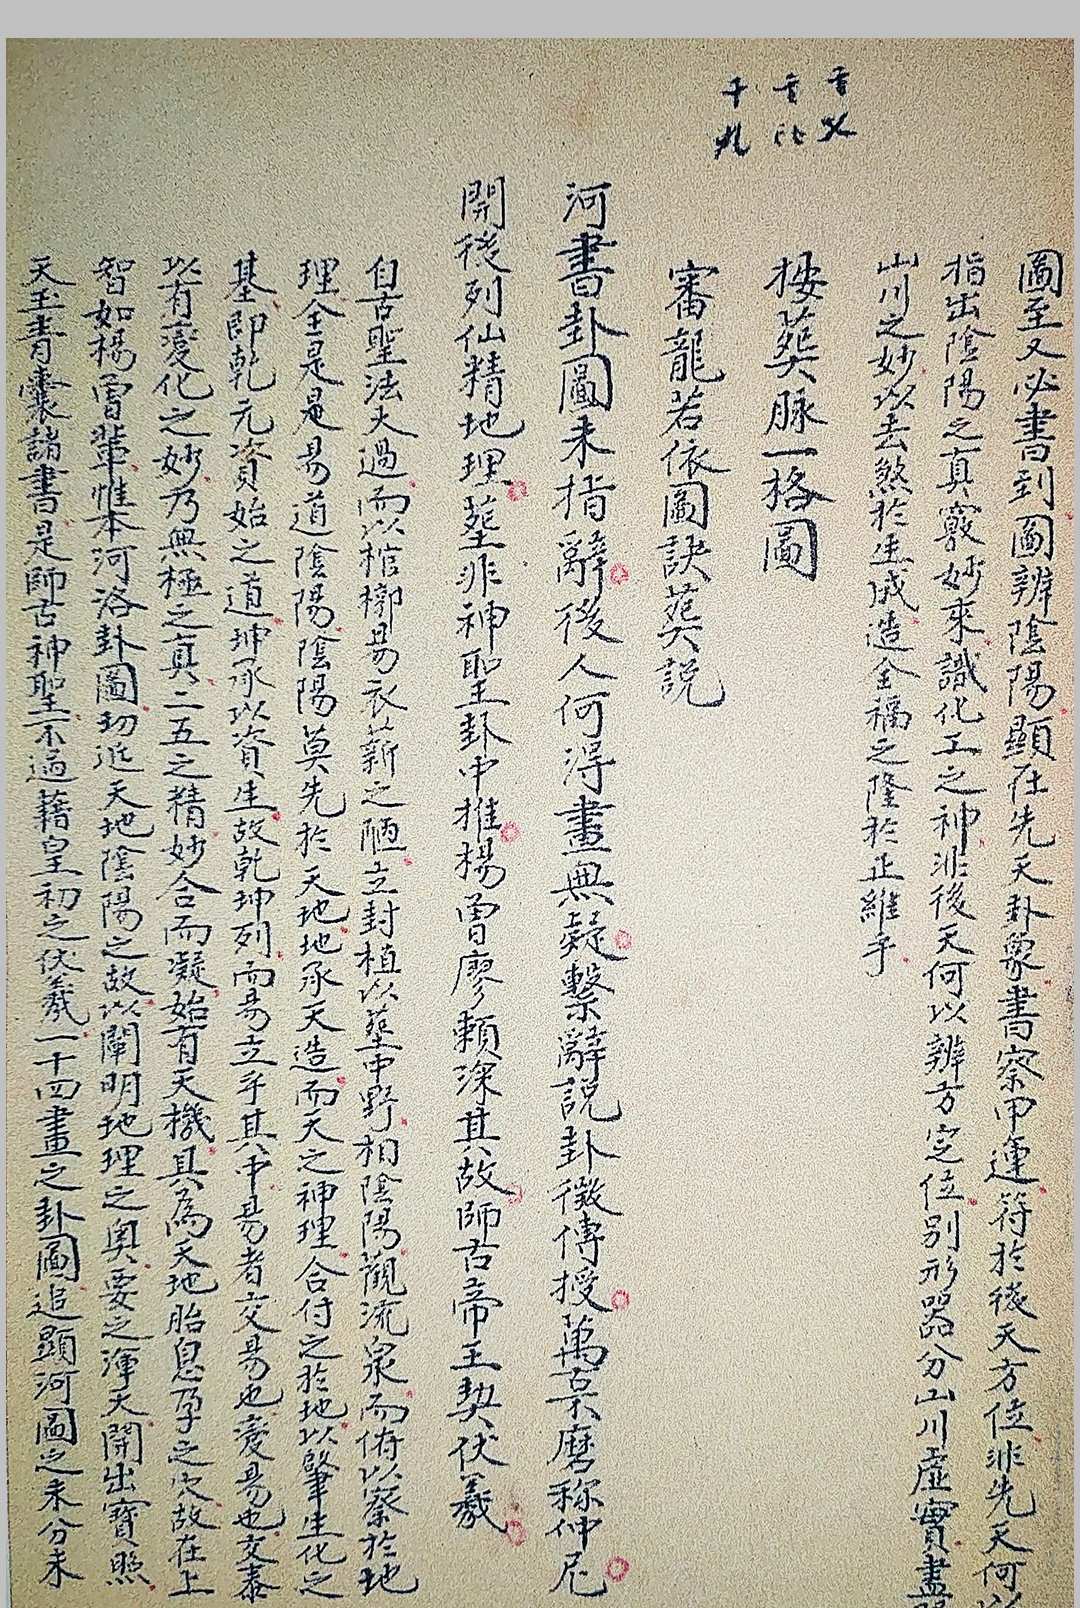 圖至又必書到圖辨陰陽顯在先天卦象書察甲運符於後天方位非先天何以
指出陰陽之真竅妙來識化工之神非後天何以辨方定位別形器分山川虛實盡
山川之妙以去煞於生成造全福之隆於正維乎
按葬脉一格圖
審龍若依圖訣葬說
河書卦圖未指辭後人何得畫無疑繫辭說卦微傳授萬禀磨称仲尼
開後列仙精地理塟非神聖卦中推楊曾廖賴深其故師古帝王契伏羲
自古聖法大過而以棺槨易衣薪之陋立封植以塟中野相陰陽觀流泉而俯以察於地
理全是是易道陰陽陰陽莫先於天地地承天造而天之神理合付之於地以肇生化之
基即乾元資始之道坤承以資生故乾坤列而易立乎其中易者交易也变易也交泰
以有变化之妙乃無極之真二五之精妙合而凝始有天機具為天地胎息孕之穴故在上
智如楊曾輩惟本河洛卦圖切近天地陰陽之故以闡明地理之奧要之渾天開出寶照
天玉青囊諸書是師古神聖不過藉皇初之伏羲一十四畫之卦圖追顯河圖之未分未